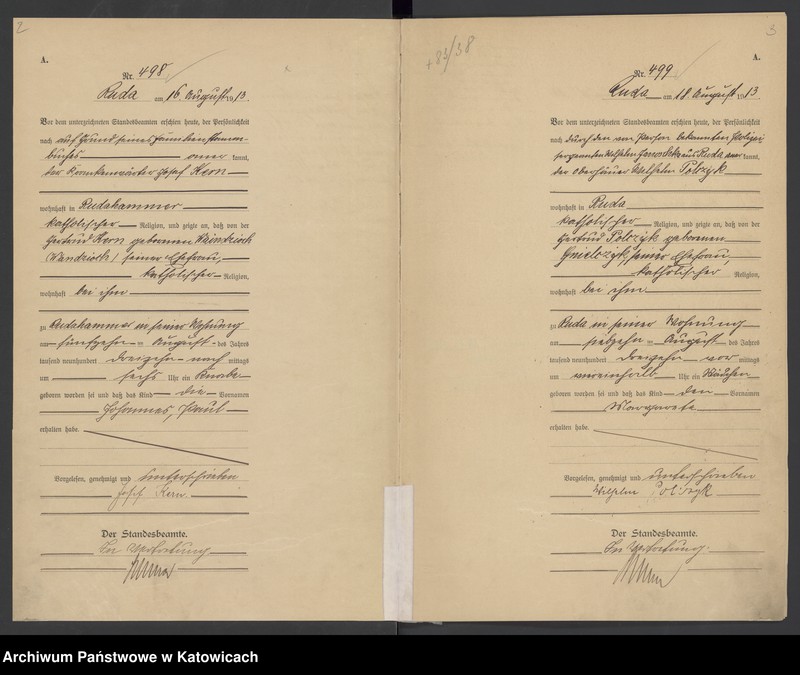 2
A.
Nr. 498
Ruda am 16 August 1913.
Vor dem unterzeichneten Standesbeamten erschien heute, der Persönlichkeit
nach auf Grund seines Familienstamm-
buches kannt,
der Krankenwärter Josef Kern
wohnhaft in Rudahammer
katholischer Religion, und zeigte an, daß von der
Gertrud Kern geborenen
seiner Ehefrau,
katholischer Religion,
wohnhaft bei ihm
zu Rudahammer in seiner Wohnung
am fünfzehn ten August des Jahres
tausend neunhundert dreizehn nach mittags
um sechs Uhr ein Knabe
geboren worden sei und daß das Kind die Vornamen
Johannes, Paul
erhalten habe.
Vorgelesen, genehmigt und unterschrieben
Josef Kern
Der Standesbeamte.
In Vertretung
+83/38
3
A.
Nr. 499
Ruda am 18 August 1913
Vor dem unterzeichneten Standesbeamten erschien heute, der Persönlichkeit
nach durch den von Person bekannten Polizei
sergeanten Wilhelm aus Ruda kannt,
der Oberhäuer Wilhelm Polczyk
wohnhaft in Ruda
katholischer Religion, und zeigte an, daß von der
Gertrud Polczyk geborenen
Gnielczyk, seiner Ehefrau,
katholischer Religion,
wohnhaft bei ihm
zu Ruda in seiner Wohnung
am siebzehn ten August des Jahres
tausend neunhundert dreizehn vor mittags
um Uhr ein Mädchen
geboren worden sei und daß das Kind den Vornamen
Margarete
erhalten habe.
Vorgelesen, genehmigt und unterschrieben
Wilhelm Polczyk
Der Standesbeamte.
In Vertretung.
Archiwum Państwowe w Katowicach